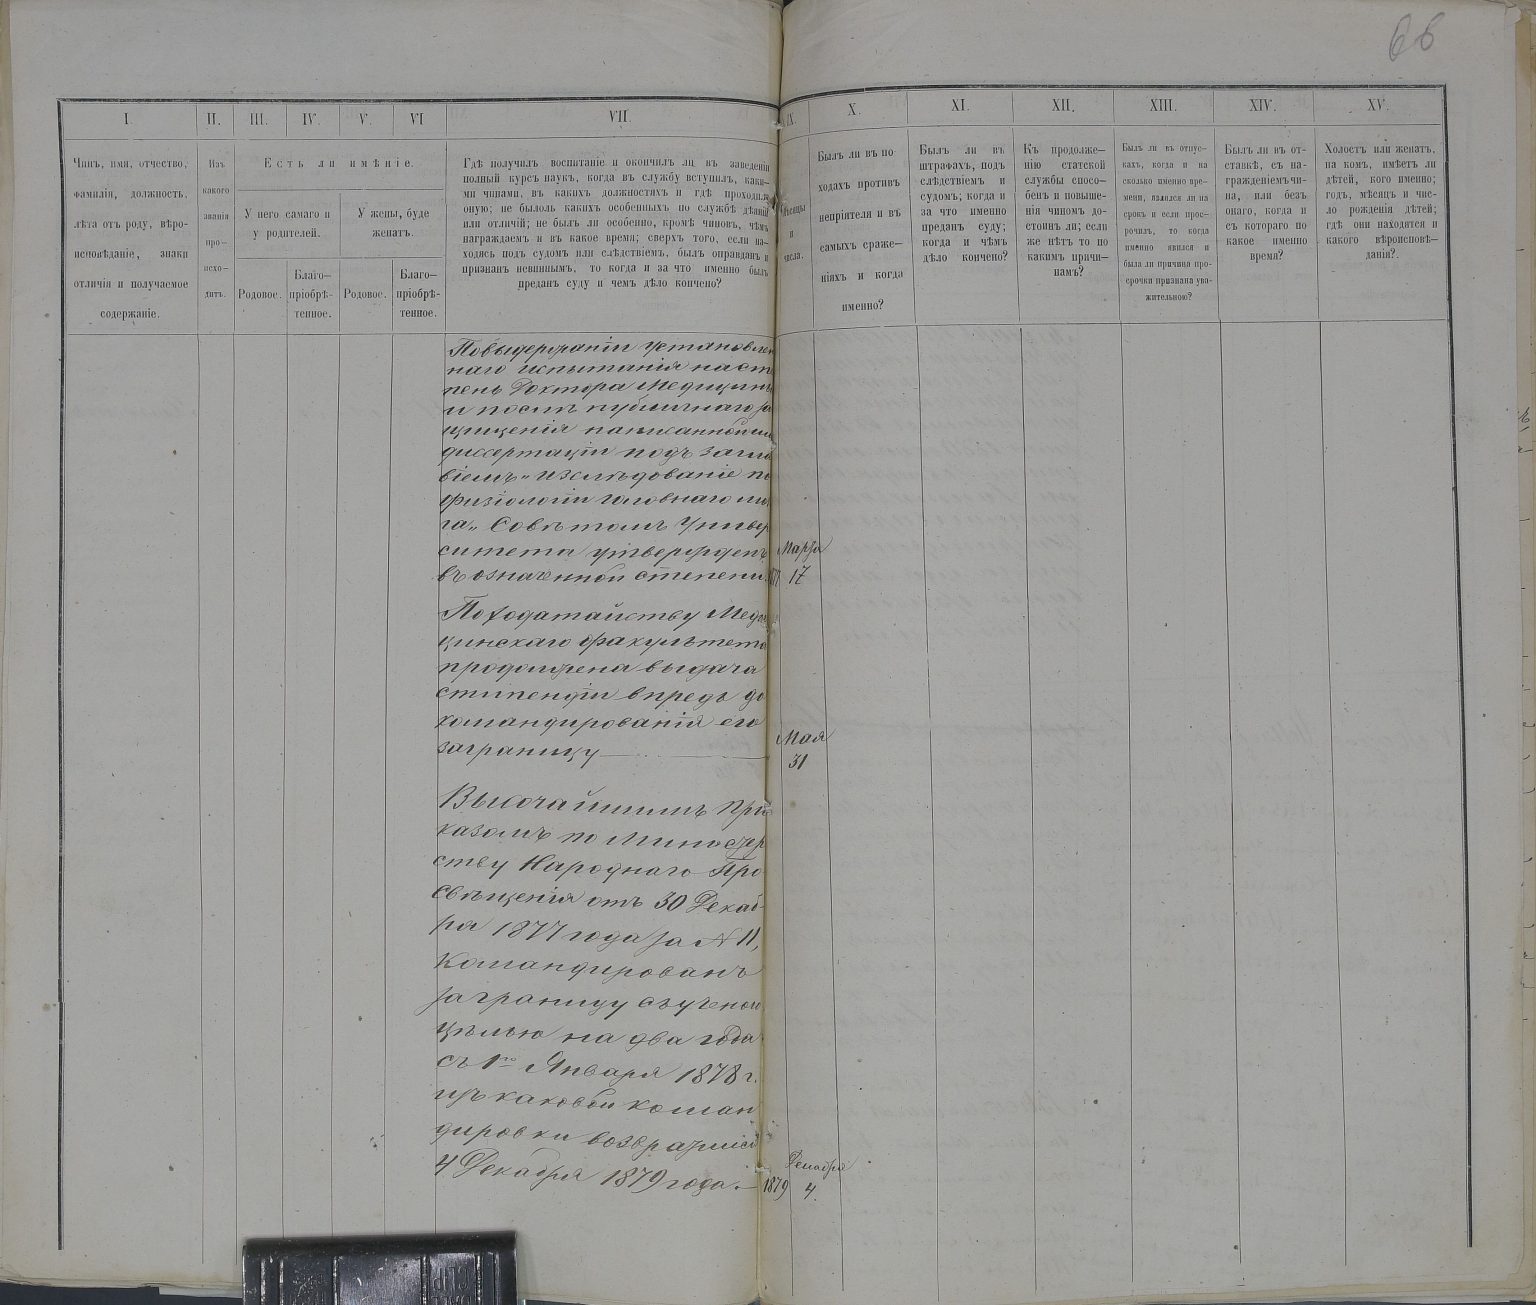 66
I. II. III. IV. V. VI VII. IX. X. XI. XII. XIII. XIV. XV.
Чинъ, имя, отчество,
фамилія, должность,
лѣта отъ роду, вѣро-
исповѣданіе, знаки
отличія и получаемое
содержаніе.
Изъ
какого
званія
про-
исхо-
дитъ.
Есть ли имѣніе.
У него самаго и
у родителей.
У жены, буде
женатъ.
Родовое.
Благо-
пріобрѣ-
тенное.
Родовое.
Благо-
пріобрѣ-
тенное.
Гдѣ получилъ воспитаніе и окончилъ ли въ заведеніи
полный курсъ наукъ, когда въ службу вступилъ, каки-
ми чинами, въ какихъ должностяхъ и гдѣ проходилъ
оную; не былоль какихъ особенныхъ по службѣ дѣяній
или отличій; не былъ ли особенно, кромѣ чиновъ, чѣмъ
награждаемъ и въ какое время; сверхъ того, если на-
ходясь подъ судомъ или слѣдствіемъ, былъ оправданъ и
признанъ невиннымъ, то когда и за что именно былъ
преданъ суду и чемъ дѣло кончено?
и
числа.
Былъ ли въ по
ходахъ противъ
непріятеля и въ
самыхъ сраже-
ніяхъ и когда
именно?
Былъ ли въ
штрафахъ, подъ
слѣдствіемъ и
судомъ; когда и
за что именно
преданъ суду;
когда и чѣмъ
дѣло кончено?
Къ продолже-
нію статской
службы спосо-
бенъ и повыше-
нія чиномъ до-
стоинъ ли; если
же нѣтъ то по
какимъ причи-
намъ?
Былъ ли въ отпус-
кахъ, когда и на
сколько именно вре-
мени, явился ли на
срокъ и если прос-
рочилъ, то когда
именно явился и
была ли причина про-
срочки признана ува-
жительною?
Былъ ли въ от-
ставкѣ, съ на-
гражденіемъ чи-
на, или безъ
онаго, когда и
съ котораго по
какое именно
время?
Холостъ или женатъ,
на комъ, имѣетъ ли
дѣтей, кого именно;
годъ, мѣсяцъ и чис-
ло рожденія дѣтей;
гдѣ они находятся и
какого вѣроисповѣ-
данія?
По выдержаніи установлен
наго испытанія на сте
пень Доктора Медицины
и послѣ публичнаго за
щищенія написанной им
диссертаціи подъ загла
віемъ „Изслѣдованіе по
физіологіи головнаго моз
га„ Совѣтомъ Универ
ситета утвержденъ
въ означенной степени.
Марта
17
По ходатайству Меди
цинскаго факультета
продолжена выдача
стипендіи впредь до
командированія его
заграницу
Мая
31
Высочайшимъ При
казомъ по Министер
ству Народнаго Про
свѣщенія отъ 30 Декаб
ря 1877 года за № 11,
командированъ
заграницу съ ученой
цѣлью на два года
съ 1го Января 1878 г.
изъ каковой коман
дировки возвратился
4 Декабря 1879 года.
Декабря
1879 4.